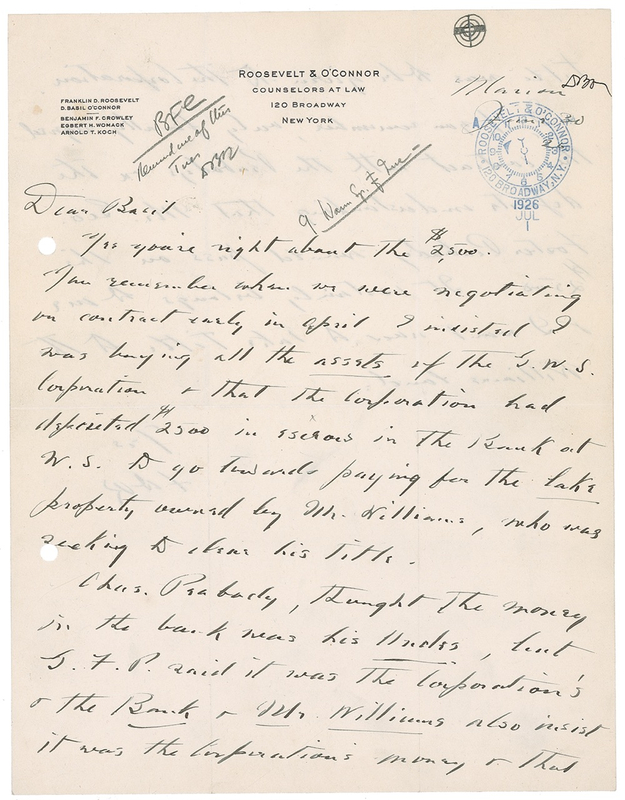 ROOSEVELT & O'CONNOR
COUNSELORS AT LAW
120 BROADWAY
NEW YORK
FRANKLIN D. ROOSEVELT
D. BASIL O'CONNOR
BENJAMIN F. CROWLEY
EGBERT H. WOMACK
ARNOLD T. KOCH
BFC
Remind me of this
Tues
Marion
June 30
ROOSEVELT & O'CONNOR
120 BROADWAY, N.Y.
1926
JUL
1
Dear Basil
Yes you're right about the $2,500.
You remember when we were negotiating
on contract early in April I insisted I
was buying all the assets of the G.W.S.
Corporation & that the Corporation had
deposited $2500 in escrow in the Bank at
W.S. to go towards paying for the Lake
property owned by Mr. Williams, who was
seeking to clear his title.
Chas. Peabody, thought the money
in the bank was his Uncles, but
G.F.P. said it was the Corporation's
& the Bank & Mr. Williams also insist
it was the Corporation's money & that